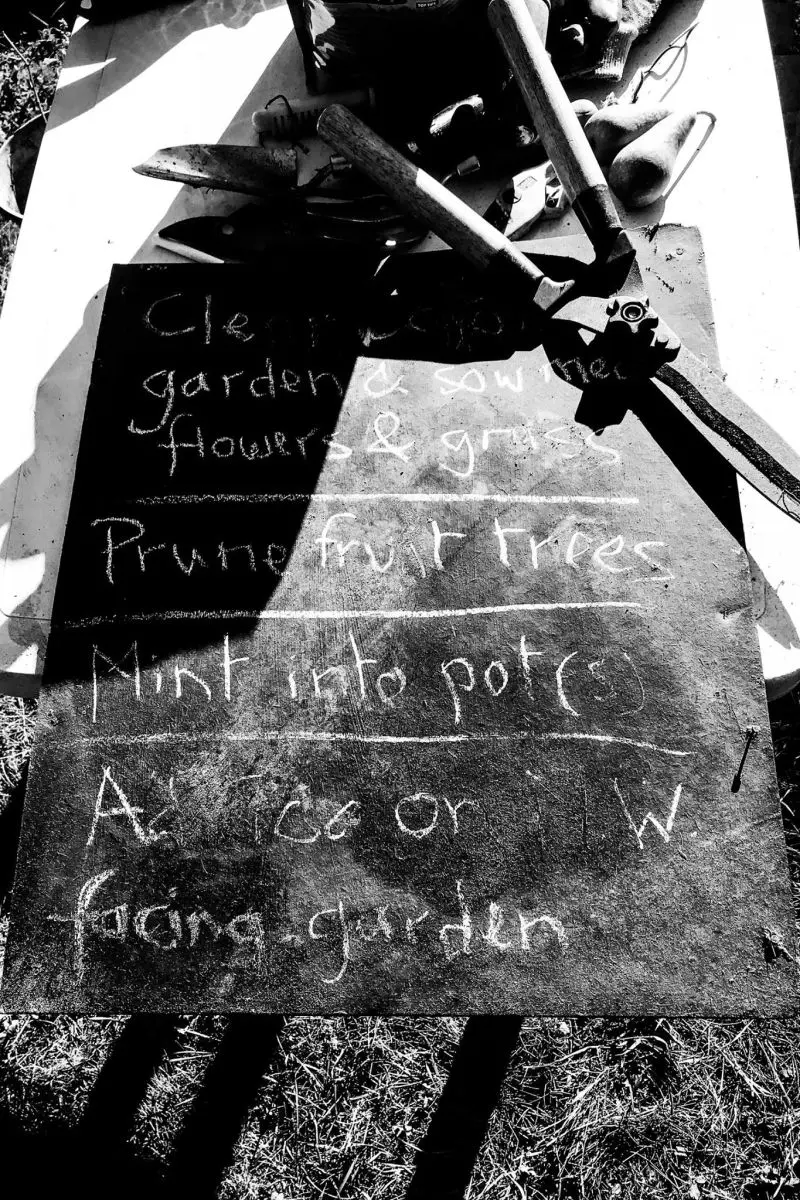 Clear
garden & sow
flowers & grass
Prune fruit trees
Mint into pot(s)
W
facing garden